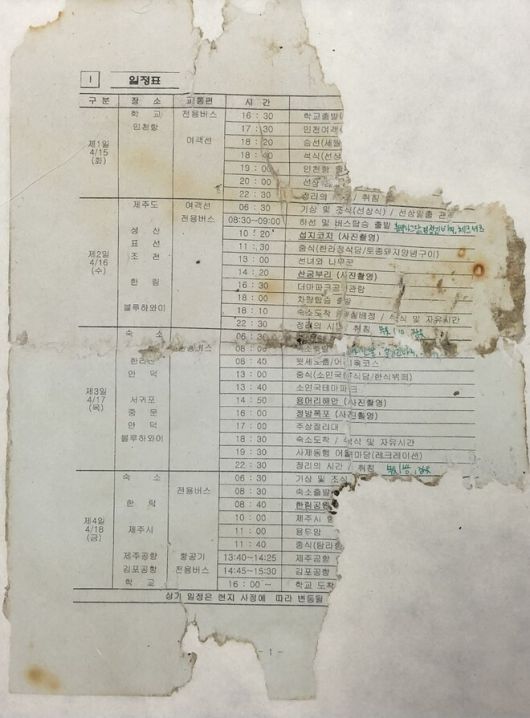 I 일정표
구 분 장 소 교통편 시 간
제1일 4/15 (화)
학 교 전용버스 16 : 30 학교출발
인천항 17 : 30 인천여객
여객선 18 : 20 승선(세월
18 : 40 석식(선상
19 : 00 인천항 출
20 : 00 선상
22 : 30 정리의 / 취침
제2일 4/16 (수)
제주도 여객선 06 : 30 기상 및 조식(선상식) / 선상일출 관
전용버스 08:30~09:00 하선 및 버스탑승 출발
성 산 10 : 20 섭지코지 (사진촬영)
표 선 11 : 30 중식(한라정식당/토종돼지양념구이)
조 천 13 : 00 선녀와 나무꾼
14 : 20 산굼부리 (사진촬영)
한 림 16 : 30 더마파크공 관람
18 : 00 차량탑승 출발
블루하와이 18 : 10 숙소도착 / 실배정 / 석식 및 자유시간
22 : 30 정리의 시간 / 취침
제3일 4/17 (목)
숙 소 06 : 30
08 : 00
한라 08 : 40 윗세오름/어 목코스
안 덕 13 : 00 중식(소인국 식당/한식뷔페)
13 : 40 소인국테마파크
서귀포 14 : 50 용머리해안 (사진촬영)
중 문 16 : 00 정방폭포 (사진촬영)
안 덕 17 : 00 주상절리대
블루하와이 18 : 30 숙소도착 / 석식 및 자유시간
19 : 30 사제동행 어울마당(레크레이션)
22 : 30 정리의 시간 / 취침
제4일 4/18 (금)
숙 소 06 : 30 기상 및 조식
전용버스 08 : 30 숙소출발
한 림 08 : 40 한림공원
10 : 00 제주시
제주시 11 : 00 용두암
11 : 40 중식(탐라
제주공항 항공기 13:40~14:25 제주공항
김포공항 전용버스 14:45~15:30 김포공항
학 교 16 : 00 ~ 학교 도착
상기 일정은 현지 사정에 따라 변동될
- 1 -